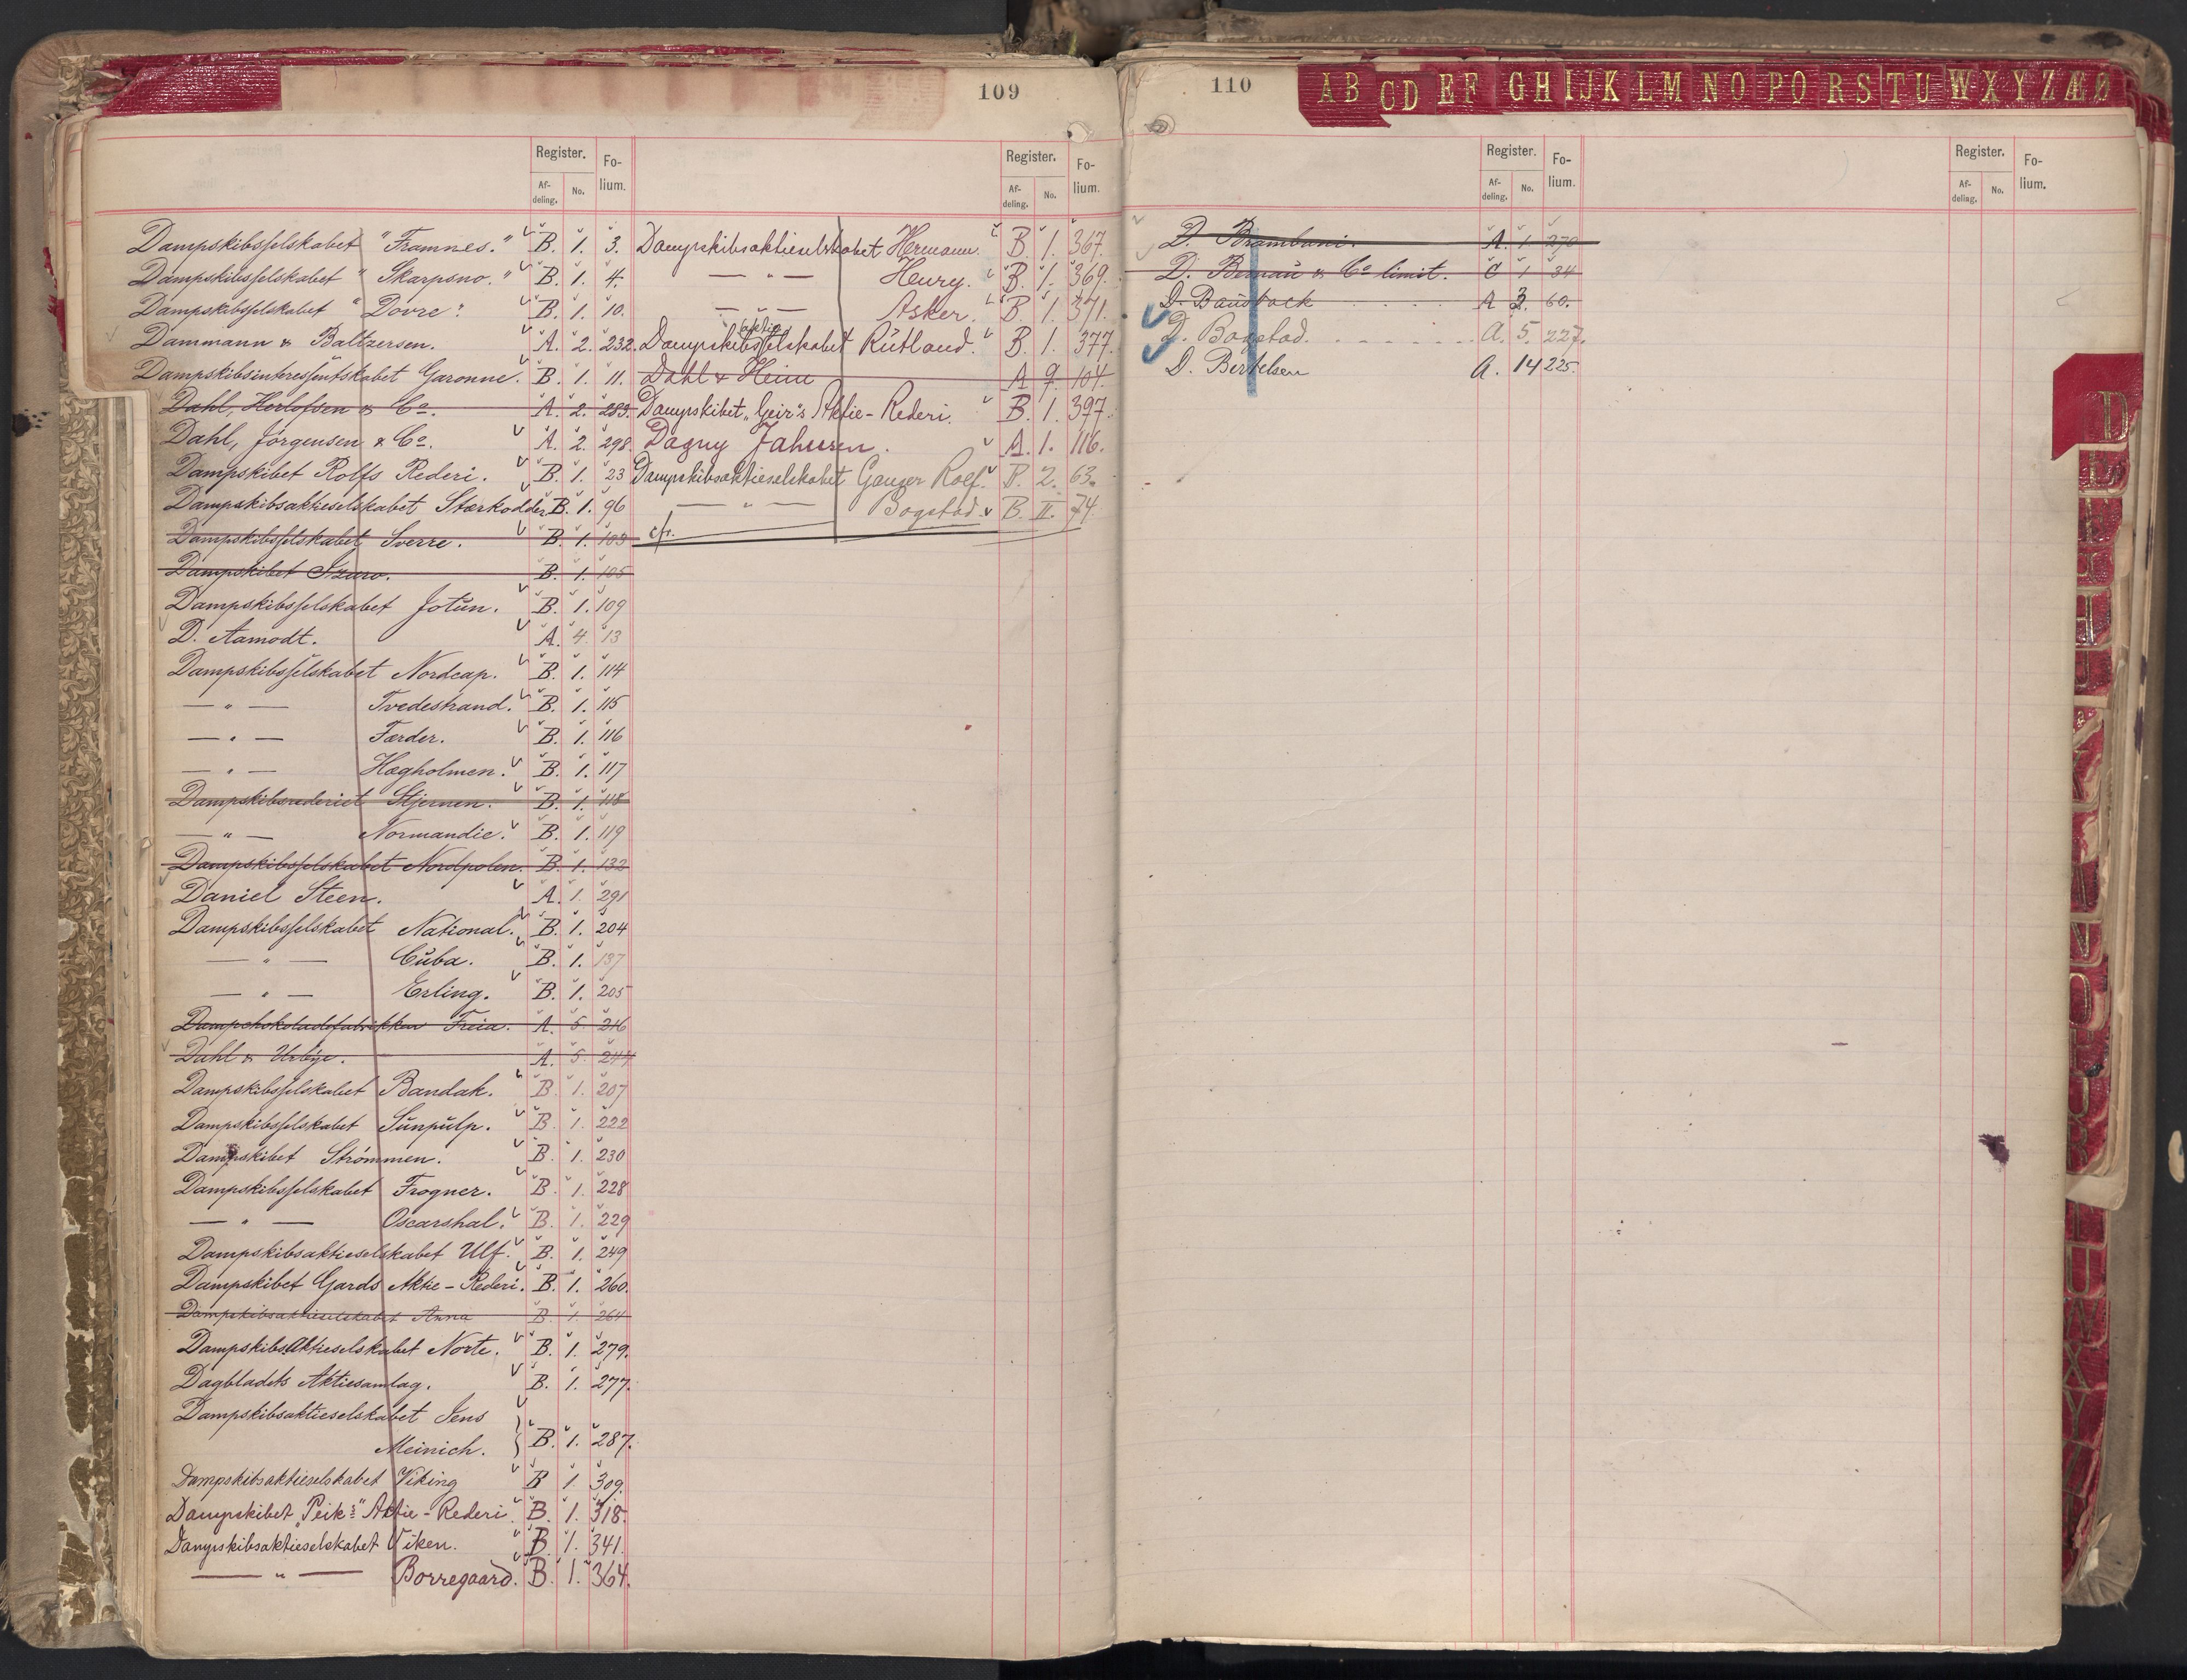 109
Register. Fo-lium.
Af-deling. No.
Dampskibsselskabet "Framnes." B. 1. 3.
Dampskibsselskabet "Skarpsno." B. 1. 4.
Dampskibsselskabet "Dovre". B. 1. 10.
Dammann & Baltzersen. A. 2. 232.
Dampskibsinteressentskabet Garonne. B. 1. 11.
Dahl, Herlofsen & Co. A. 2. 283.
Dahl, Jörgensen & Co. A. 2. 298.
Dampskibet Rolfs Rederi. B. 1. 23
Dampskibsaktieselskabet Stærkodder B. 1. 96
Dampskibsselskabet Sverre. B. 1. 103
Dampskibet B. 1. 105
Dampskibsselskabet Jotun. B. 1. 109
D. Aamodt. A. 4. 13
Dampskibsselskabet Nordcap. B. 1. 114
— " — Tvedestrand. B. 1. 115
— " — Færder. B. 1. 116
— " — Hægholmen. B. 1. 117
Dampskibsrederiet Stjernen. B. 1. 118
— " — Normandie. B. 1. 119
Dampskibsselskabet Nordpolen. B. 1. 132
Daniel Steen. A. 1. 291
Dampskibsselskabet National. B. 1. 204
— " — Cuba. B. 1. 137
— " — Erling. B. 1. 205
Dampchokoladefabrikken Freia. A. 5. 216
Dahl & Urbye. A. 5. 244
Dampskibsselskabet Bandak. B. 1. 207
Dampskibsselskabet Sunpulp. B. 1. 222
Dampskibet Strömmen. B. 1. 230
Dampskibsselskabet Frogner. B. 1. 228
— " — Oscarshal. B. 1. 229
Dampskibsaktieselskabet Ulf. B. 1. 249
Dampskibet Gards Aktie-Rederi. B. 1. 260.
Dampskibsaktieselskabet Anna B. 1. 264
DampskibsAktieselskabet Norte. B. 1. 279.
Dagbladets Aktiesamlag. B. 1. 277.
Dampskibsaktieselskabet Jens
Meinich. } B. 1. 287.
Dampskibsaktieselskabet Viking B 1. 309.
Dampskibet "Peik"s Aktie-Rederi. B. 1. 318.
Dampskibsaktieselskabet Viken. B. 1. 341.
— " — Borregaard. B. 1. 364.
Register. Fo-lium.
Af-deling. No.
Dampskibsaktieselskabet Hermann. B. 1. 367.
— " — Henry. B. 1. 369.
— " — Asker. B. 1. 371.
aktie
Dampskibsselskabet Rutland. B. 1. 377.
Dahl & Heim A 9. 104.
Dampskibet "Geir"s Aktie-Rederi. B. 1. 397.
Dagny Jahnsen. A. 1. 116.
Dampskibsaktieselskabet Ganger Rolf. B. 2. 63.
— " — Bogstad. B. II. 74.
cfr.
110
AB CD EF GH IJK LM NO PQ RS TU WX YZ ÆØ
Register. Fo-lium.
Af-deling. No.
D. Brambani. A. 1 270
D. & Co limit. C 1 34
D. A 3. 60.
D. Bogstad. A. 5. 227.
D. Bertelsen A. 14 225.
Register. Fo-lium.
Af-deling. No.
D